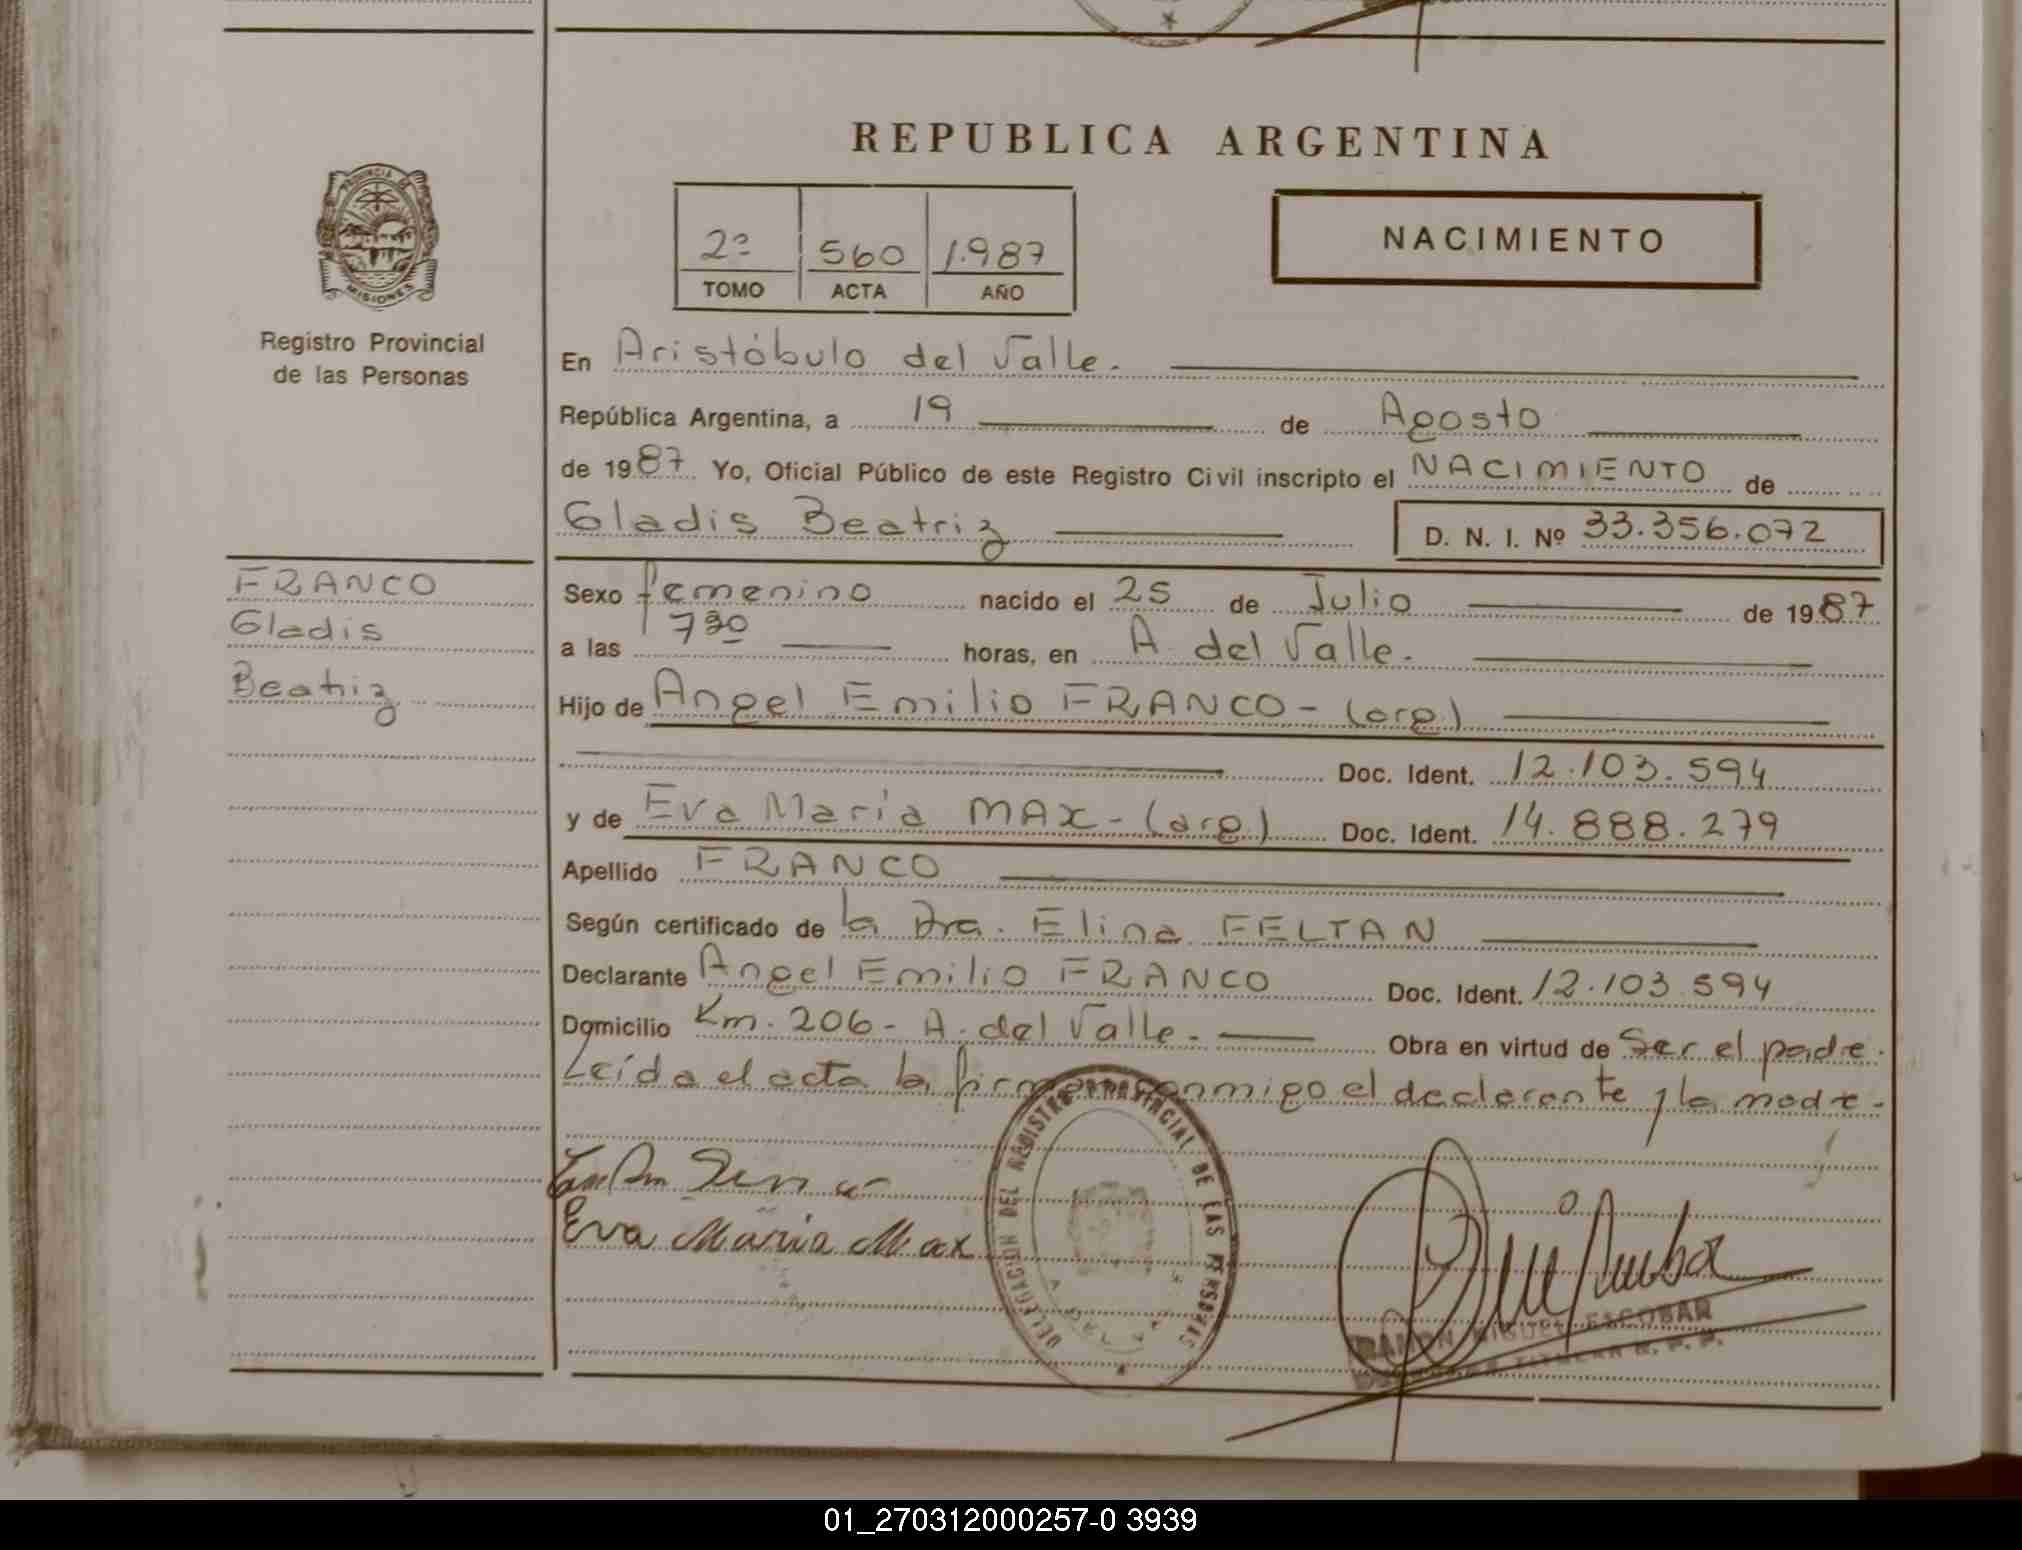 REPUBLICA ARGENTINA
PROVINCIA DE
MISIONES
Registro Provincial
de las Personas
NACIMIENTO
2º 560 1.987
TOMO ACTA AÑO
En Aristóbulo del Valle.
República Argentina, a 19 de Agosto
de 1987 Yo, Oficial Público de este Registro Civil inscripto el NACIMIENTO de
Gladis Beatriz D. N. I. Nº 33.356.072
FRANCO
Gladis
Beatriz
Sexo femenino nacido el 25 de Julio de 1987
a las 7 30 horas, en A. del Valle.
Hijo de Angel Emilio FRANCO - (arg)
Doc. Ident. 12.103.594
y de Eva María MAX - (arg) Doc. Ident. 14.888.279
Apellido FRANCO
Según certificado de la Dra. Elina FELTAN
Declarante Angel Emilio FRANCO Doc. Ident. 12.103.594
Domicilio Km. 206 - A. del Valle. Obra en virtud de Ser el padre.
Leída el acta la firman conmigo el declarante y la madre.
Eva Maria Max
DELEGACION DEL REGISTRO PROVINCIAL DE LAS PERSONAS
RAMON MIGUEL ESCOBAR
01_270312000257-0 3939